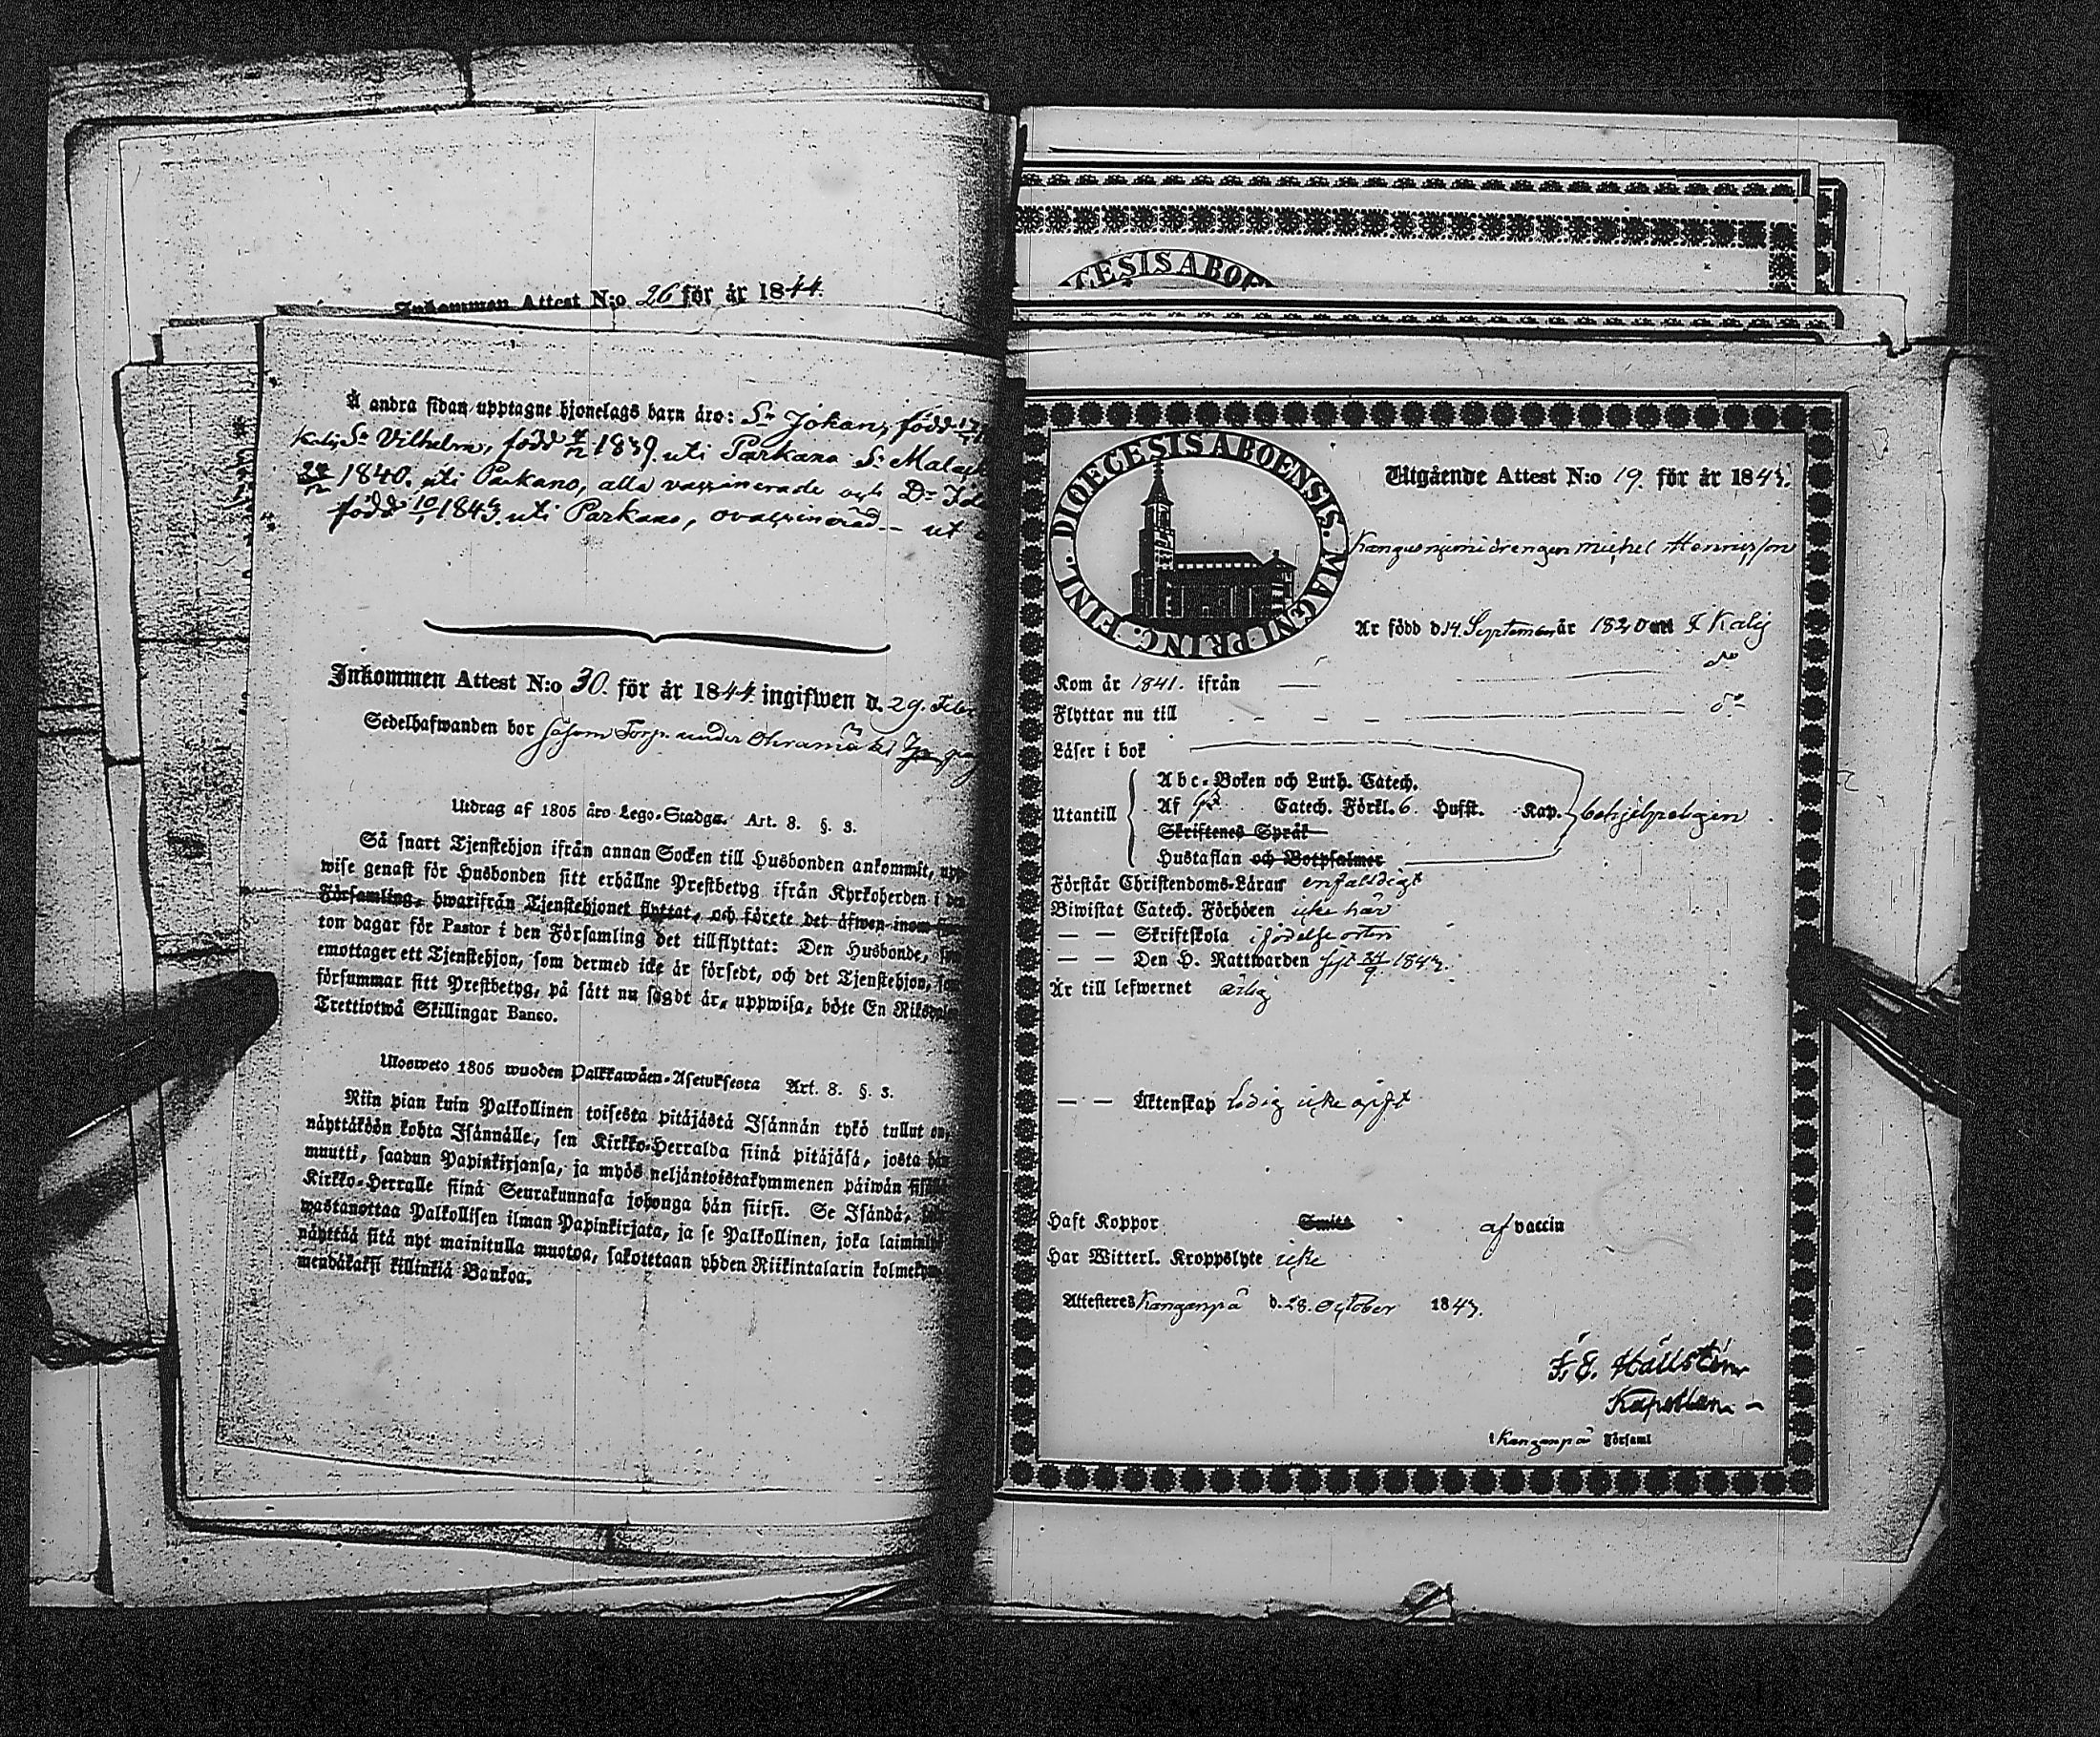 Inkommen Attest N:o 26 för år 1844.
Å andra sidan upptagne hjonelags barn äro: Sn Johan, född
Sn Vilhelm, född 1839. uti Parkano Sn
1840. uti Parkano, alla vaccinerade och Dr
född 10/1 1843. uti Parkano, ovaccinerad – ut
Inkommen Attest N:o 30. för år 1844. ingifwen d. 29. Febr
Sedelhafwanden bor såsom Torp. under
Utdrag af 1805 års Lego-Stadga. Art. 8. §. 3.
Så snart Tjenstehjon ifrån annan Socken till Husbonden ankommit, upp
wise genast för Husbonden sitt erhållne Prestbetyg ifrån Kyrkoherden i den
Församling, hwarifrån Tjenstehjonet flyttat, och förete det äfwen inom
ton dagar för Pastor i den Församling det tillflyttat: Den Husbonde, som
emottager ett Tjenstehjon, som dermed icke är försedt, och det Tjenstehjon,
försummar sitt Prestbetyg, på sätt nu sagdt är, uppwisa, böte En Riksdaler
Trettiotwå Skillingar Banco.
Ulosweto 1805 wuoden Palkkawäen-Asetuksesta Art. 8. §. 3.
Niin pian kuin Palkollinen toisesta pitäjästä Isännän tykö tullut on,
näyttäköön kohta Isännälle, sen Kirkko-Herralda siinä pitäjäsä, josta hän
muutti, saadun Papinkirjansa, ja myös neljäntoistakymmenen päiwän
Kirkko-Herralle siinä Seurakunnasa johonga hän siirsi. Se Isändä,
wastanottaa Palkollisen ilman Papinkirjata, ja se Palkollinen, joka
näyttää sitä nyt mainitulla muotoa, sakotetaan yhden Riikintalarin
mendäkaksi killinkiä Bankoa.
CESIS ABOE
DIOECESIS ABOENSIS. MAGNI PRINC. FINL.
Utgående Attest N:o 19. för år 1843.
drengen Michel Henricsson
Är född d 14. September år 1820 uti Ikalis
Kom år 1841. ifrån — do
Flyttar nu till — do
Läser i bok
Utantill
Abc-Boken och Luth. Catech.
Af Catech. Förkl. 6 Hufst. Kap. behjelpeligen
Skriftenes Språk
Hustaflan och Botpsalmer
Förstår Christendoms-Läran enfaldigt
Biwistat Catech. Förhören icke här
— — Skriftskola i födelse orten
— — Den H. Nattwarden sist 24/9. 1843.
Är till lefwernet ärlig
— — Äktenskap ledig icke gift
Haft Koppor Smitt af vaccin
Har Witterl. Kroppslyte icke
Attesteres Kanganpä d. 28. October 1843.
F. E. Hällström
Kapellan –
i Kanganpä Församl